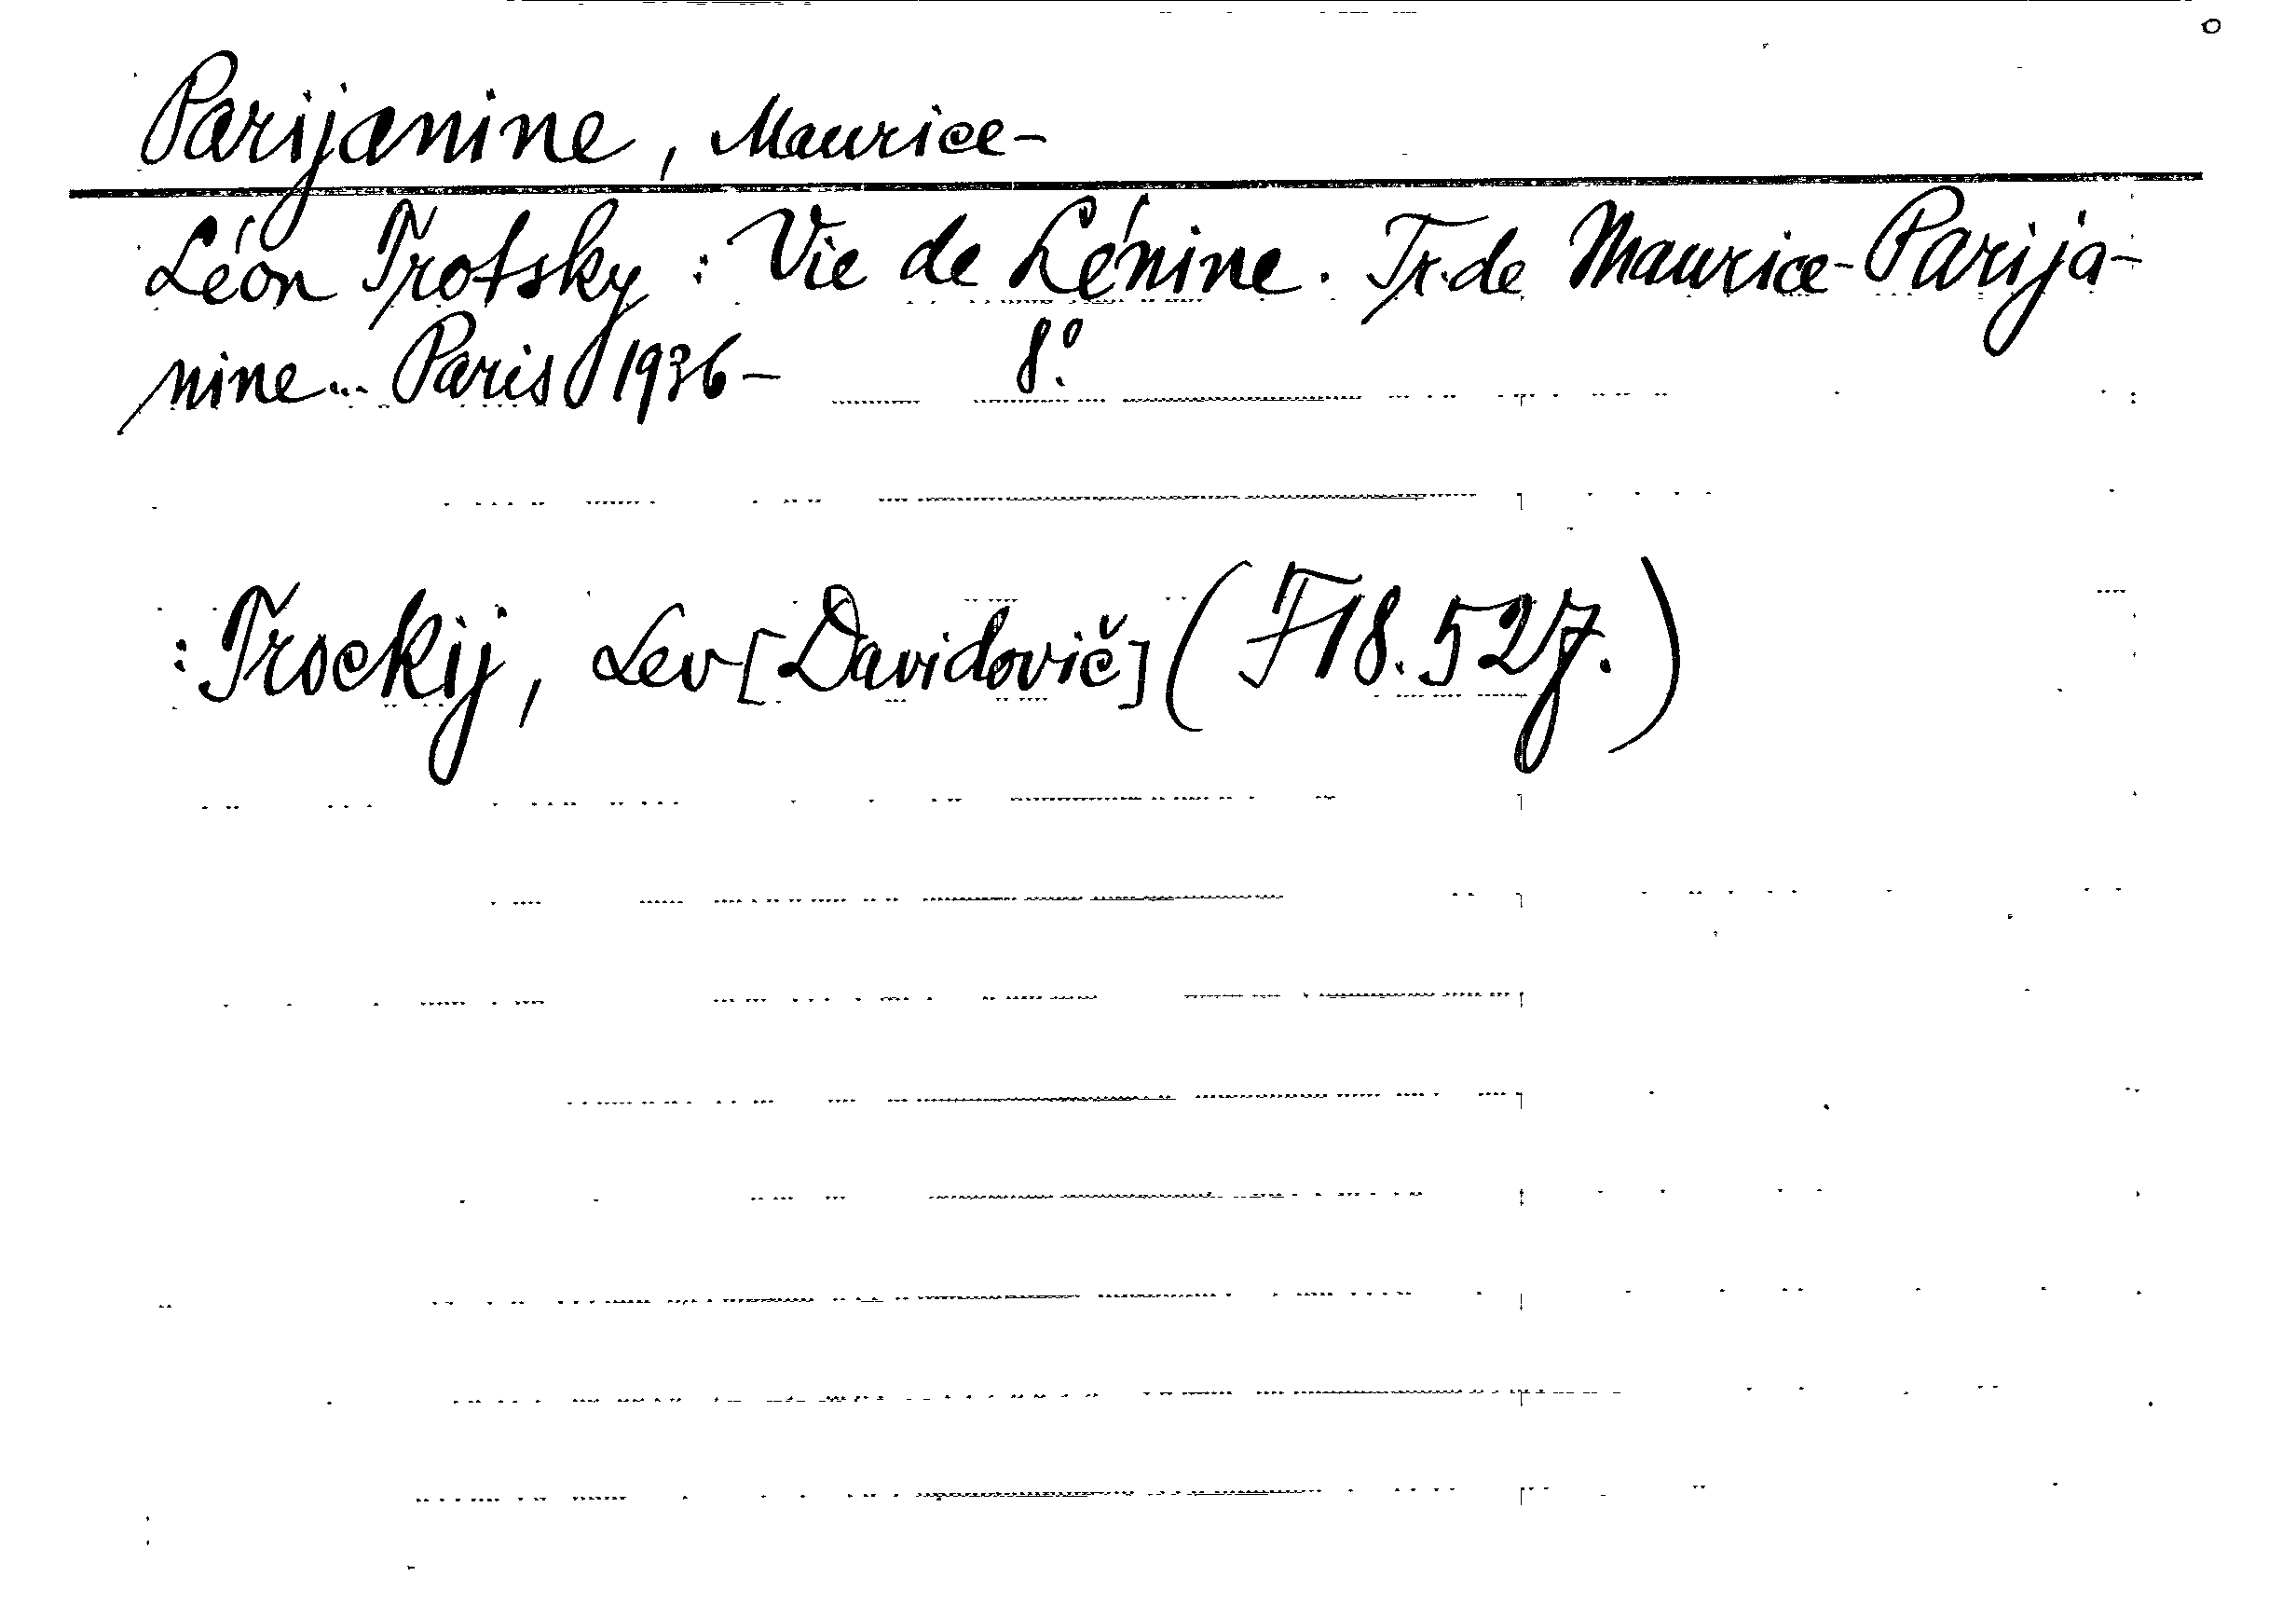 Parijanine, Maurice-
Léon Trotsky : Vie de Lénine. Tr. de Maurice-Parija-
nine... Paris 1936-   8°.
: Trockij, Lev [Davidovič] (F18.527.)